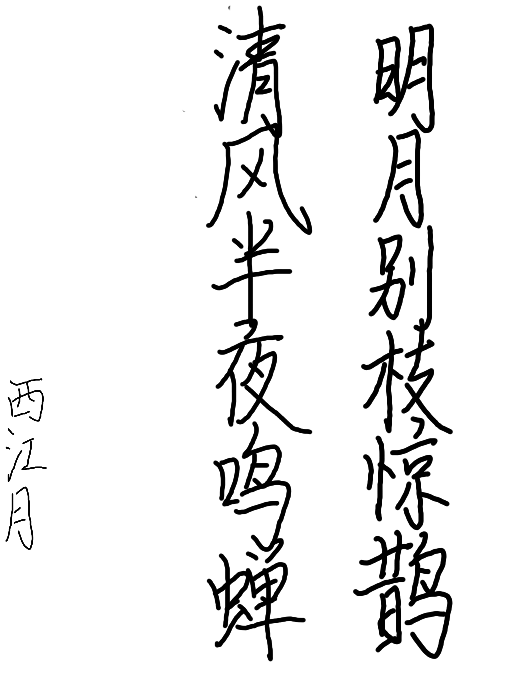 明月别枝惊鹊
清风半夜鸣蝉
西江月